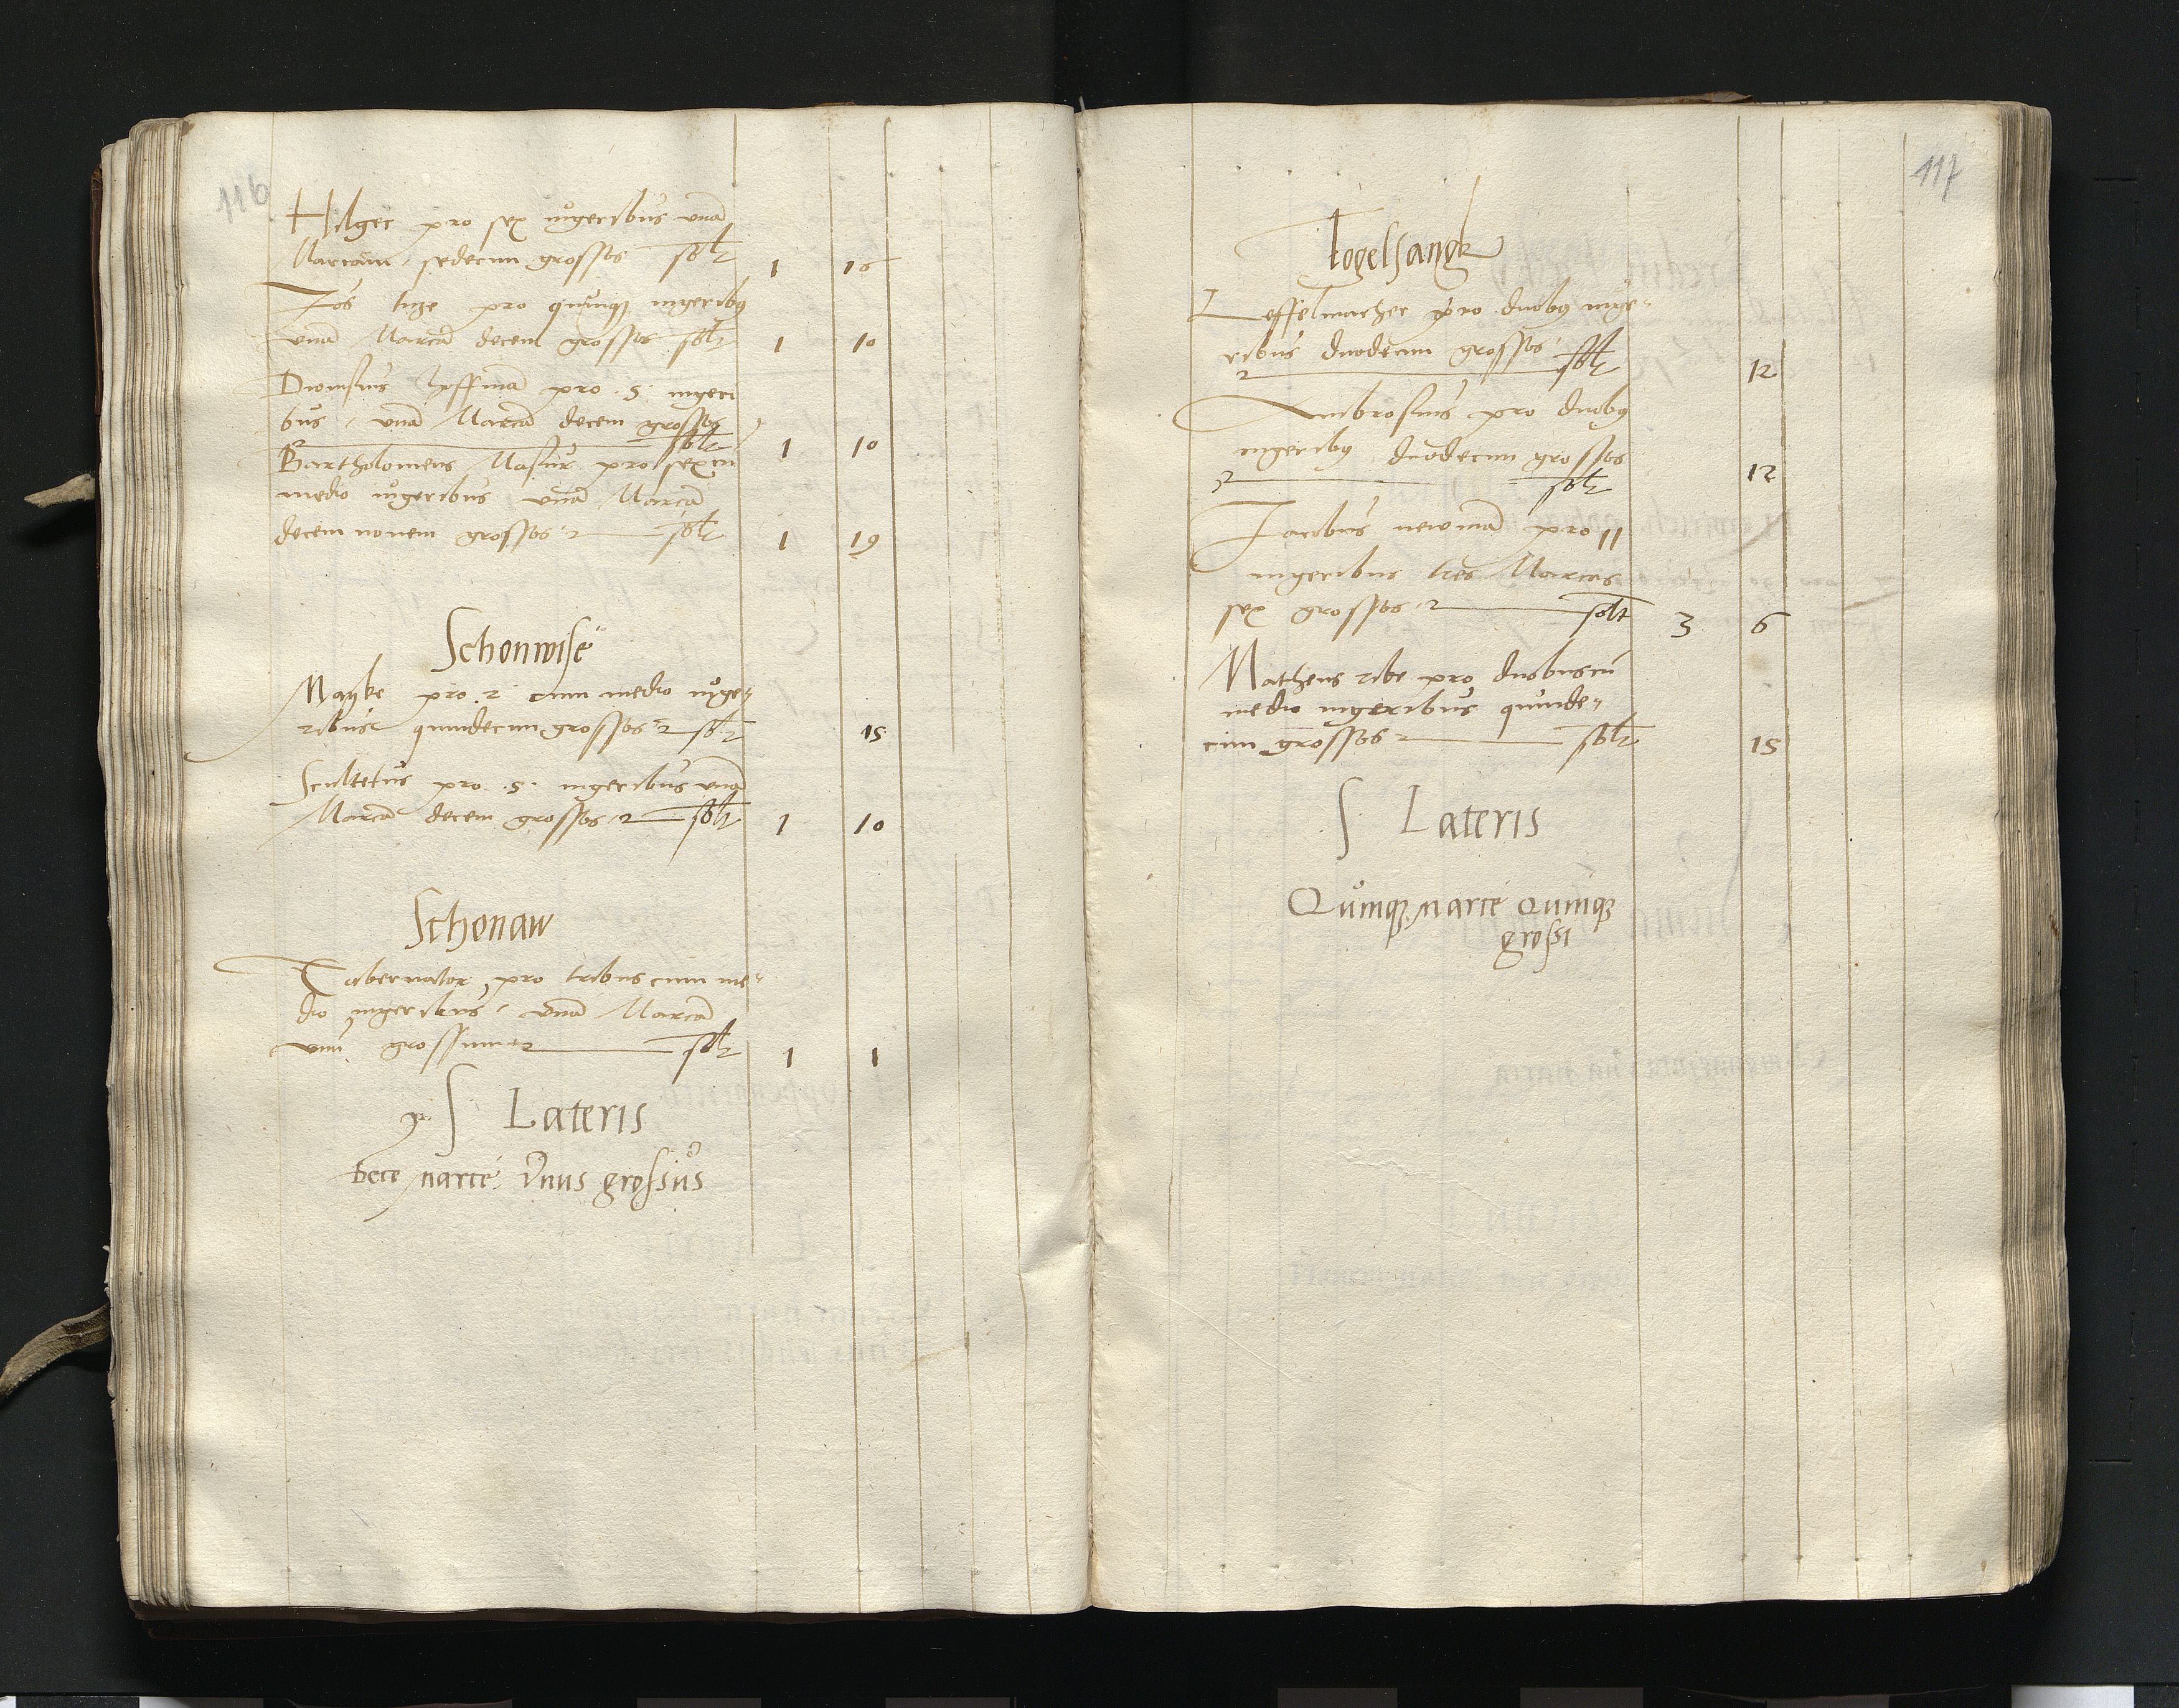 116
Hilger pro sex iůgeribus vnā
Marcam sedecim grossos solt 1 16
Jos tuge pro quinqz iugeribꝫ
vnā Marcā decem grossos solt 1 10
Dionisius hoffmā pro .5. iugeri
bus, vnā Marcā decem grossos
solt 1 10
Bartholomeus Masur pro sex cū
medio iůgeribus vnā Marcā
decem nouem grossos solt 1 19
Schonwise
Mayke pro .2. cum medio iůge„
ribus quindecim grossos solt 15
Scultetus pro .5. iugeribus vnā
Marcā decem grossos solt 1 10
Schonaw
Tabernator pro tribus cum me„
dio iugeribus, vnā Marcā
vnū grossum solt 1 1
S Lateris
Dece marce Vnus grossůs
117
Fogelsangk
Leffelmacher pro duobꝫ iuge„
ribus duodecim grossos
solt 12
Ambrosius pro duobꝫ
iugeribꝫ duodecim grossos
solt 12
Jacobus newmā pro 11
iugeribus tres Marcas
sex grossos solt 3 6
Matheus ribe pro duobus cū
medio iugeribus quinde„
cim grossos solt 15
S Lateris
Quīnqz marce Quinqz
grossi